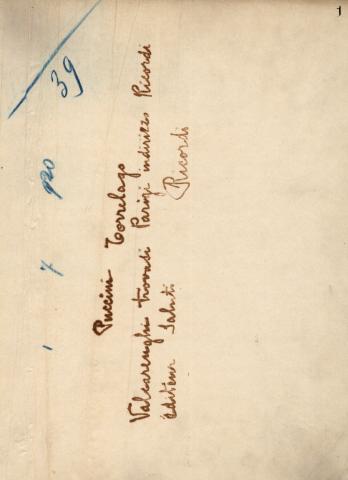 1
39
1 7 920
Puccini Torrelago
Valcarenghi trovasi Parigi indirizzo Ricordi
éditeur Saluti
Ricordi